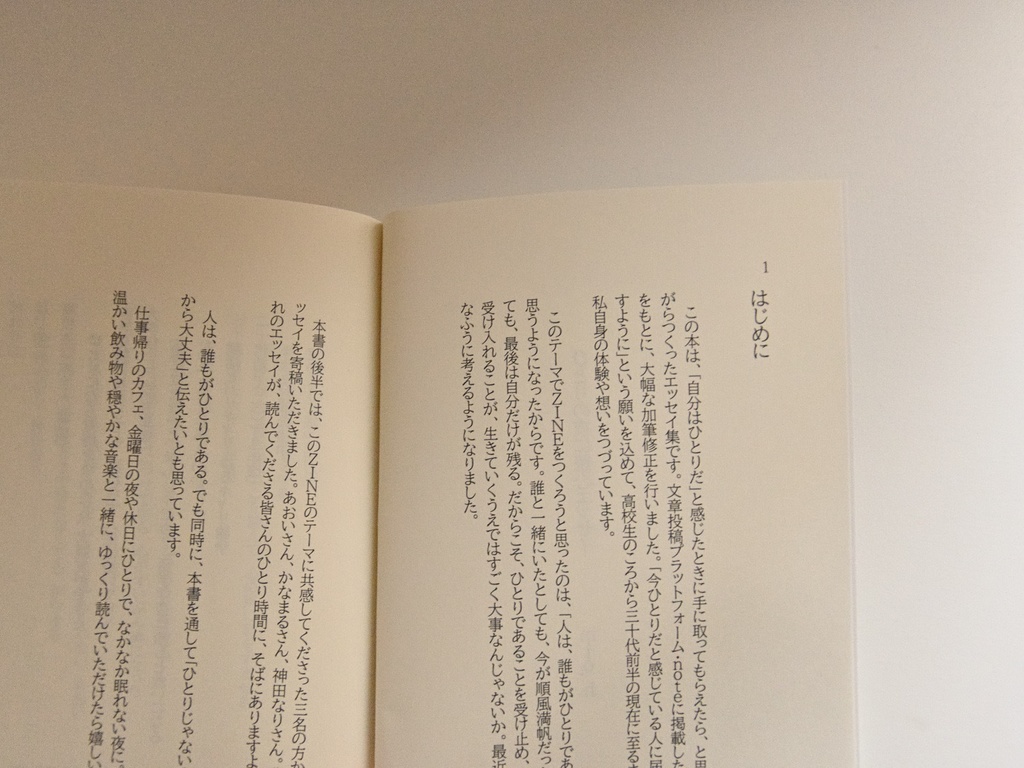 1
はじめに
この本は、「自分はひとりだ」と感じたときに手に取ってもらえたら、と思
がらつくったエッセイ集です。文章投稿プラットフォーム・noteに掲載した
をもとに、大幅な加筆修正を行いました。「今ひとりだと感じている人に届
すように」という願いを込めて、高校生のころから三十代前半の現在に至るま
私自身の体験や想いをつづっています。
このテーマでZINEをつくろうと思ったのは、「人は、誰もがひとりであ
思うようになったからです。誰と一緒にいたとしても、今が順風満帆だっ
ても、最後は自分だけが残る。だからこそ、ひとりであることを受け止め、
受け入れることが、生きていくうえではすごく大事なんじゃないか。最近
なふうに考えるようになりました。
本書の後半では、このZINEのテーマに共感してくださった三名の方か
ッセイを寄稿いただきました。あおいさん、かなまるさん、神田なりさん。
れのエッセイが、読んでくださる皆さんのひとり時間に、そばにありますよ
人は、誰もがひとりである。でも同時に、本書を通して「ひとりじゃない
から大丈夫」と伝えたいとも思っています。
仕事帰りのカフェ、金曜日の夜や休日にひとりで、なかなか眠れない夜に。
温かい飲み物や穏やかな音楽と一緒に、ゆっくり読んでいただけたら嬉しい